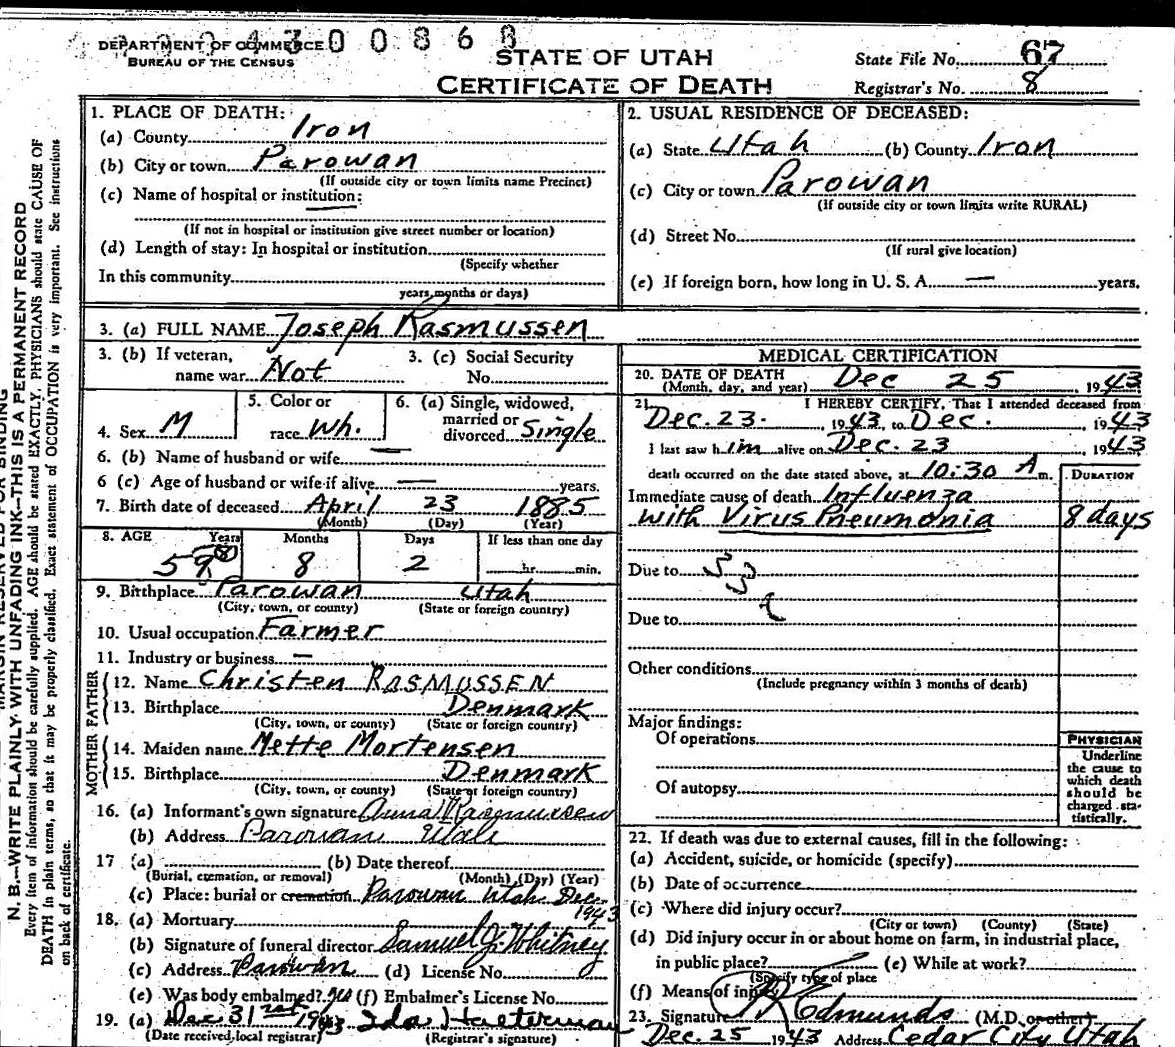 4300868
DEPARTMENT OF COMMERCE
BUREAU OF THE CENSUS
STATE OF UTAH
CERTIFICATE OF DEATH
State File No. 67
Registrar's No. 8
MARGIN RESERVED FOR BINDING
N. B.—WRITE PLAINLY WITH UNFADING INK—THIS IS A PERMANENT RECORD
Every item of information should be carefully supplied. AGE should be stated EXACTLY. PHYSICIANS should state CAUSE OF
DEATH in plain terms, so that it may be properly classified. Exact statement of OCCUPATION is very important. See instructions
on back of certificate.
1. PLACE OF DEATH:
(a) County Iron
(b) City or town Parowan
(If outside city or town limits name Precinct)
(c) Name of hospital or institution:
(If not in hospital or institution give street number or location)
(d) Length of stay: In hospital or institution
(Specify whether
In this community
years, months or days)
2. USUAL RESIDENCE OF DECEASED:
(a) State Utah (b) County Iron
(c) City or town Parowan
(If outside city or town limits write RURAL)
(d) Street No.
(If rural give location)
(e) If foreign born, how long in U. S. A. — years.
3. (a) FULL NAME Joseph Rasmussen
3. (b) If veteran, name war Not
3. (c) Social Security No.
4. Sex M
5. Color or race Wh.
6. (a) Single, widowed, married or divorced Single
6. (b) Name of husband or wife —
6 (c) Age of husband or wife if alive — years.
7. Birth date of deceased April 23 1885
(Month) (Day) (Year)
8. AGE Years Months Days If less than one day
59 58 8 2 hr. min.
9. Birthplace Parowan Utah
(City, town, or county) (State or foreign country)
10. Usual occupation Farmer
11. Industry or business —
FATHER
12. Name Christen RASMUSSEN
13. Birthplace Denmark
(City, town, or county) (State or foreign country)
MOTHER
14. Maiden name Mette Mortensen
15. Birthplace Denmark
(City, town, or county) (State or foreign country)
16. (a) Informant's own signature Anna Rasmussen
(b) Address Parowan Utah
17 (a) (b) Date thereof
(Burial, cremation, or removal) (Month) (Day) (Year)
(c) Place: burial or cremation Parowan Utah Dec.
1943
18. (a) Mortuary
(b) Signature of funeral director Samuel J. Whitney
(c) Address Parowan (d) License No.
(e) Was body embalmed? (f) Embalmer's License No.
19. (a) Dec 31st 1943 Ida Halterman
(Date received local registrar) (Registrar's signature)
MEDICAL CERTIFICATION
20. DATE OF DEATH
(Month, day, and year) Dec 25, 1943
21. I HEREBY CERTIFY, That I attended deceased from
Dec. 23, 1943 to Dec., 1943
I last saw him alive on Dec. 23 1943
death occurred on the date stated above, at 10:30 A m.
DURATION
Immediate cause of death Influenza
with Virus Pneumonia 8 days
Due to 33
Due to
Other conditions
(Include pregnancy within 3 months of death)
Major findings:
Of operations
Of autopsy
PHYSICIAN
Underline
the cause to
which death
should be
charged sta-
tistically.
22. If death was due to external causes, fill in the following:
(a) Accident, suicide, or homicide (specify)
(b) Date of occurrence
(c) Where did injury occur?
(City or town) (County) (State)
(d) Did injury occur in or about home on farm, in industrial place,
in public place? (e) While at work?
(Specify type of place
(f) Means of injury
23. Signature Edmunds (M.D. or other)
Dec. 25 1943 Address Cedar City Utah